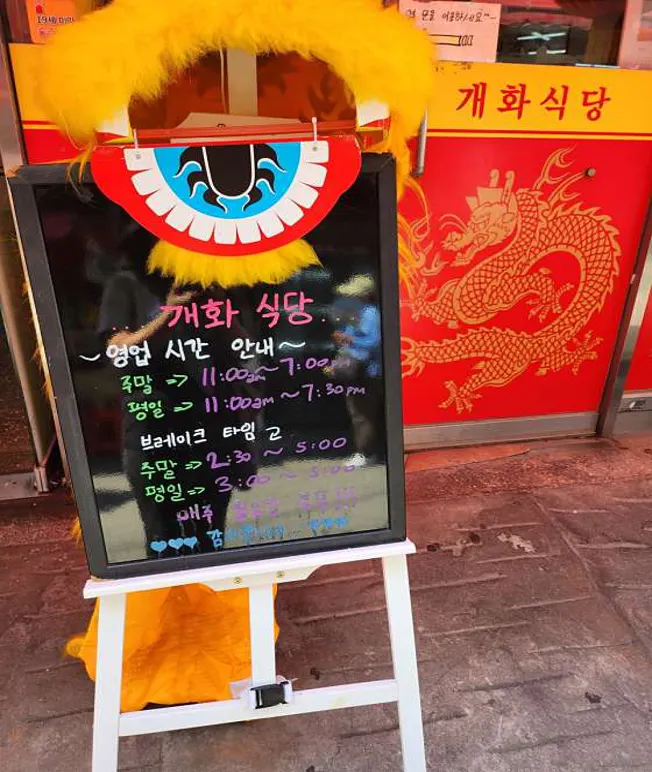 19세 미
문을 이용하세요
개화식당
개화 식당
~영업 시간 안내~
주말 => 11:00am ~ 7:00pm
평일 => 11:00am ~ 7:30pm
브레이크 타임
주말 => 2:30 ~ 5:00
평일 => 3:00 ~ 5:00
매주
♥♥♥